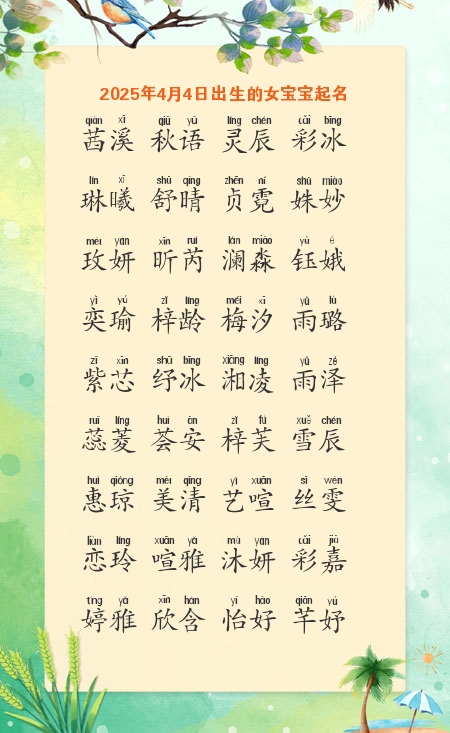 2025年4月4日出生的女宝宝起名
qiàn xī qiū yǔ líng chén cǎi bīng
茜溪 秋语 灵辰 彩冰
lín xī shū qíng zhēn ní shū miào
琳曦 舒晴 贞霓 姝妙
méi yán xīn ruì lán miǎo yù é
玫妍 昕芮 澜淼 钰娥
yì yú zǐ líng méi xī yǔ lù
奕瑜 梓龄 梅汐 雨璐
zǐ xīn shū bīng xiāng líng yǔ zé
紫芯 纾冰 湘凌 雨泽
ruǐ líng huì ān zǐ fú xuě chén
蕊菱 荟安 梓芙 雪辰
huì qióng měi qīng yì xuān sī wén
惠琼 美清 艺喧 丝雯
liàn líng xuān yǎ mù yán cǎi jiā
恋玲 喧雅 沐妍 彩嘉
tíng yǎ xīn hán yí hǎo qiān yú
婷雅 欣含 怡好 芊妤